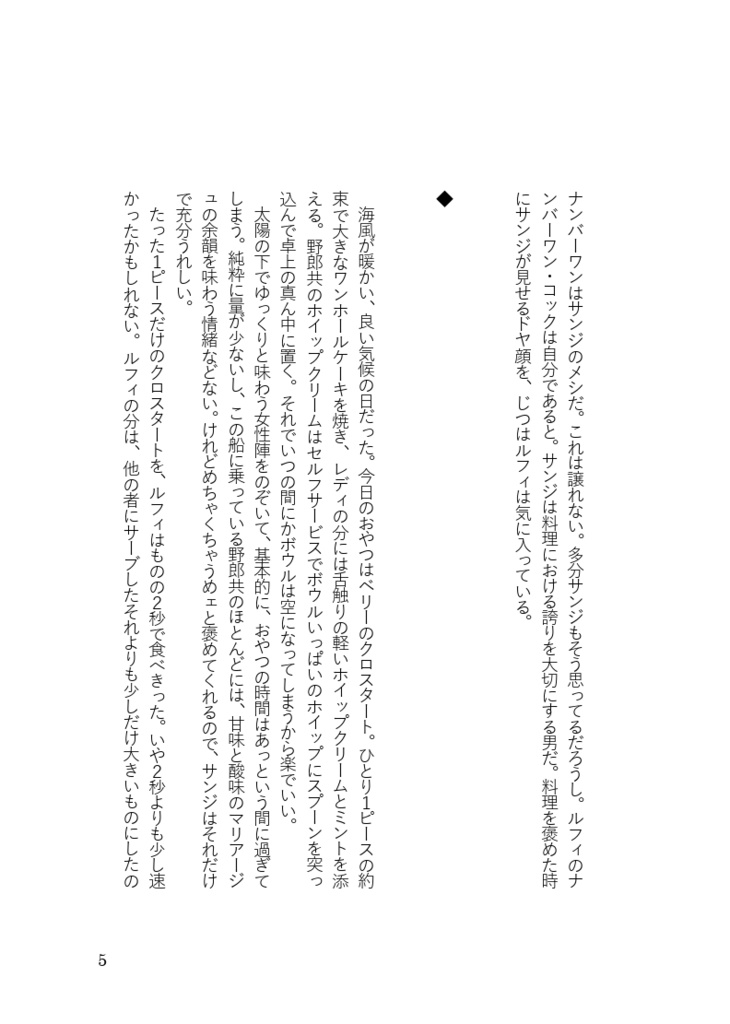 ナンバーワンはサンジのメシだ。これは譲れない。多分サンジもそう思ってるだろうし。ルフィのナ
ンバーワン・コックは自分であると。サンジは料理における誇りを大切にする男だ。料理を褒めた時
にサンジが見せるドヤ顔を、じつはルフィは気に入っている。
◆
海風が暖かい、良い気候の日だった。今日のおやつはベリーのクロスタート。ひとり1ピースの約
束で大きなワンホールケーキを焼き、レディの分には舌触りの軽いホイップクリームとミントを添
える。野郎共のホイップクリームはセルフサービスでボウルいっぱいのホイップにスプーンを突っ
込んで卓上の真ん中に置く。それでいつの間にかボウルは空になってしまうから楽でいい。
太陽の下でゆっくりと味わう女性陣をのぞいて、基本的に、おやつの時間はあっという間に過ぎて
しまう。純粋に量が少ないし、この船に乗っている野郎共のほとんどには、甘味と酸味のマリアージ
ュの余韻を味わう情緒などない。けれどめちゃくちゃうめェと褒めてくれるので、サンジはそれだけ
で充分うれしい。
たった1ピースだけのクロスタートを、ルフィはものの2秒で食べきった。いや2秒よりも少し速
かったかもしれない。ルフィの分は、他の者にサーブしたそれよりも少しだけ大きいものにしたの
5